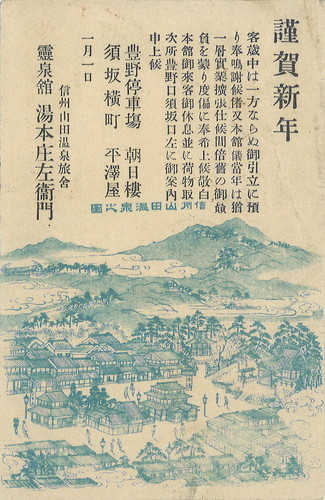 謹賀新年
客歳中は一方ならぬ御引立に預
り奉鳴謝候偖又本館儀當年は猶
一層實業擴張仕候間倍舊の御贔
負を蒙り度偏に奉希上候敬白
本館御來客御休息並に荷物取
次所豊野口須坂口左に御案内
申上候
豊野停車塲 朝日樓
須坂横町 平澤屋
一月一日
信州山田温泉旅舎
靈泉舘 湯本庄左衞門
信州山田温泉之圖